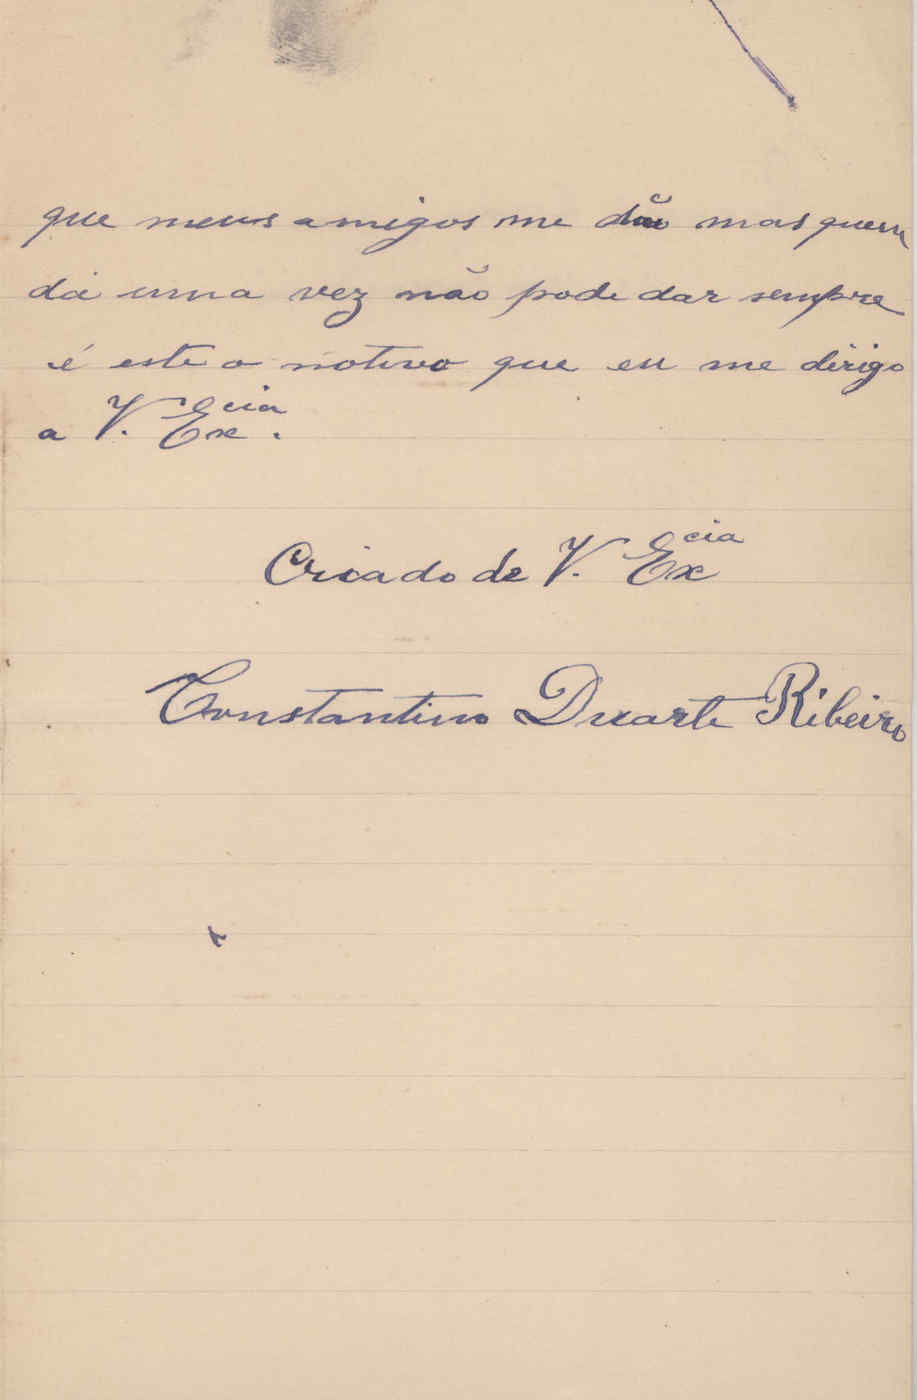 que meus amigos me dão mas quem
dá uma vez não pode dar sempre
é este o motivo que eu me dirigo
a V. Ex.cia
Criado de V. Excia
Constantino Duarte Ribeiro